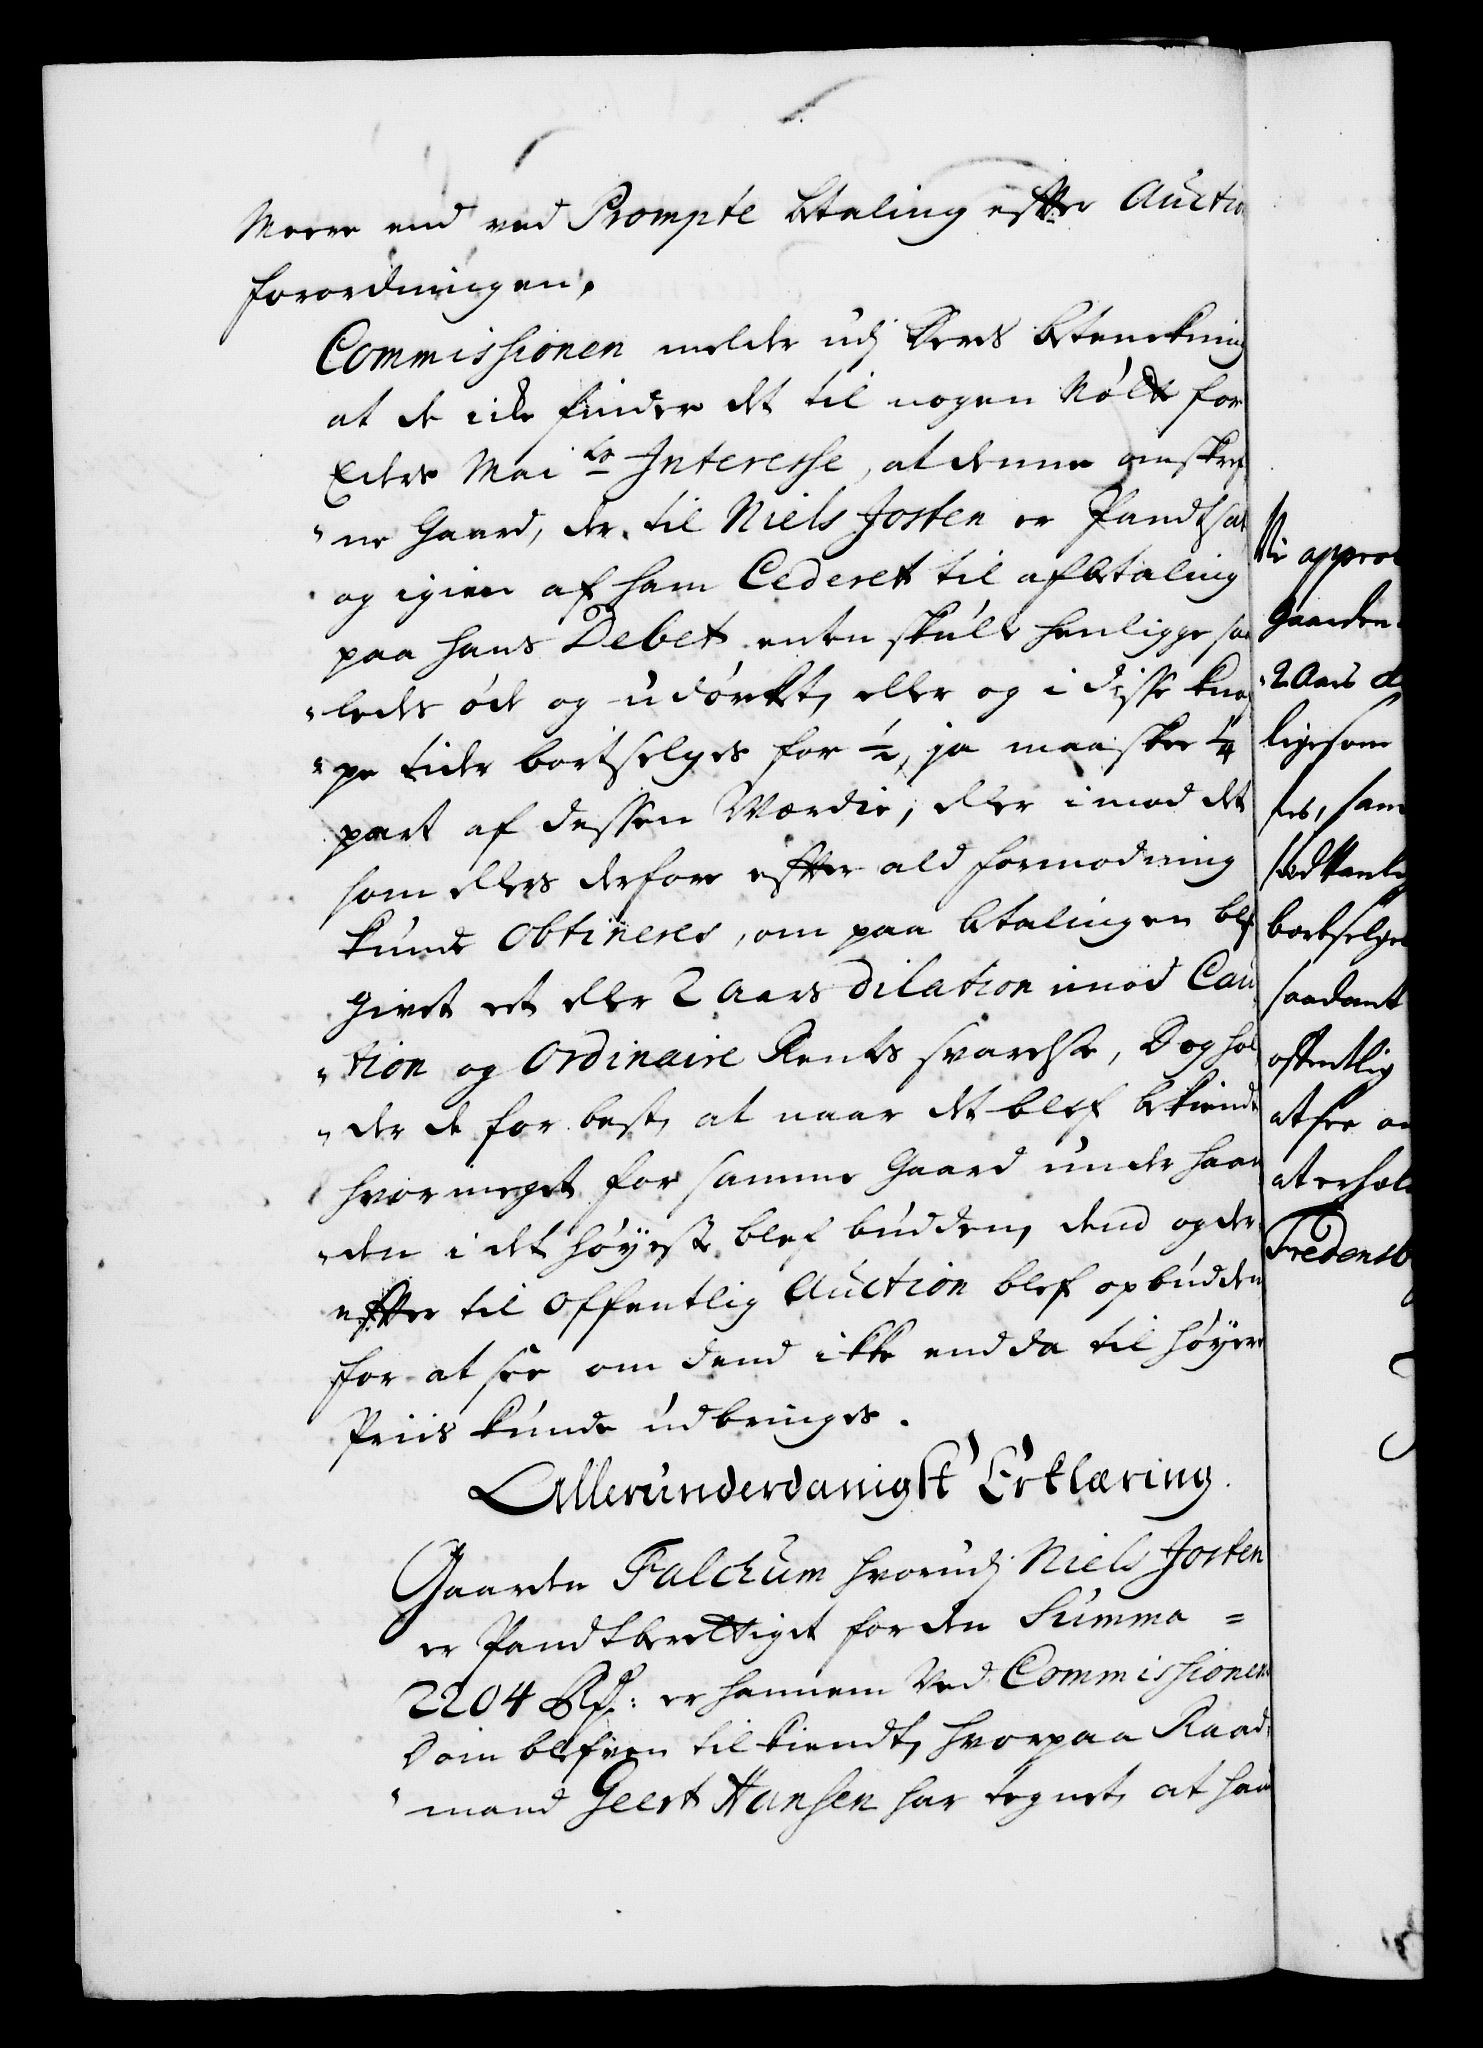 Meere end ved Prompte betaling effter Auctio
forordningen.
Commissionen melder udj deres betenckning
at de icke finder det til nogen Nøtte for
Eders Maits Interesse, at denne omskref
"ne Gaard, der til Niels Josten er Pandtsat
og igien af ham Cederet til afbetaling
paa hans Debet enten skulle henligge saa
"ledes øde og udørket, eller og i disse kna
"pe tider bortselges for ½, ja maaskee ¼
part af dessen Værdie, eller imod det
som ellers derfore effter ald formodning
kunde Obtineres, om paa betalingen blef
givet et eller 2 Aars dilation imod Cau
"tion og Ordinaire Rentes svarelse, Dog hol
"der de for best, at naar det blef bekiendt
hvor meget for samme Gaard under haan
"den i det høyeste blef budden, dend og der
effter til offentlig Auction blef opbudden
for at see om dend ikke endda til høyere
Priis kunde udbringes.
Allerunderdanigst Erklæring.
Gaarden Falchum hvorudj Niels Josten
er Pandtberettiget for den Summa =
2204 Rdr: er hannem Ved Commissionens
Dom blefven tilkiendt, hvorpaa Raad
"mand Geert Hansen har tegnet, at han
Vi appro
Gaarden
2 Aars d
ligesom
tes, sam
sædvanlig
bortselges
saadant
offentlig
at see om
at erhol
Fredensb